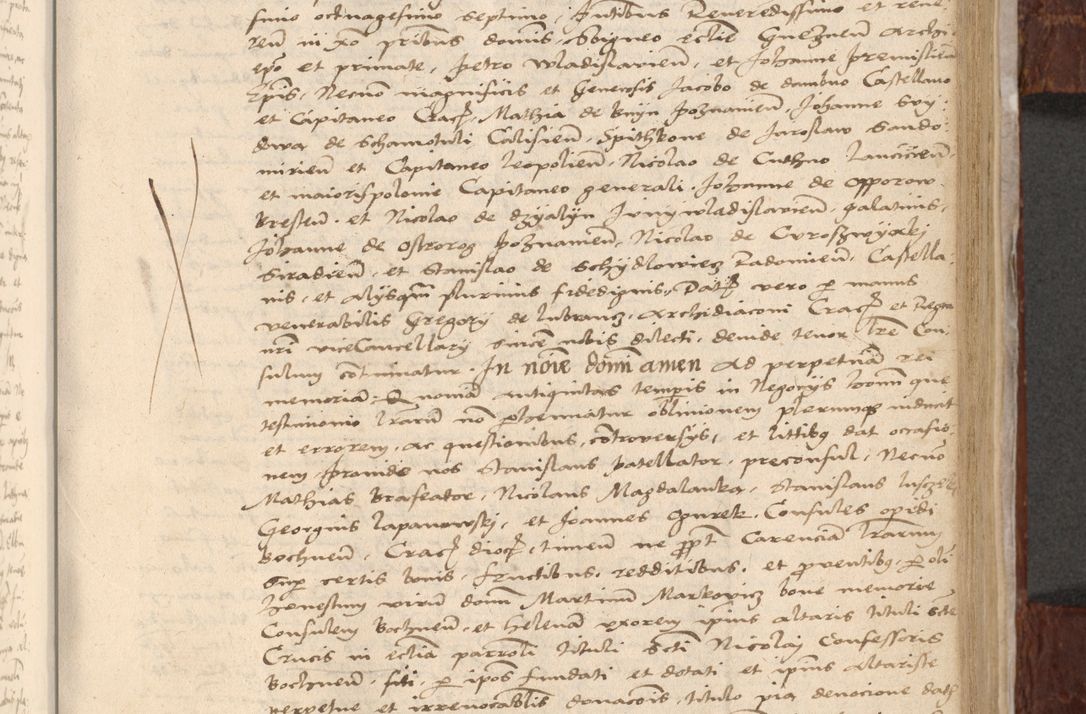 simo octuagesimo septimo, pn̄tibus Reveredissimo et reve
ren̄ in xo p̄ribus dominis Sbigneo eclīe Gneznen̄ Archi
ep̄o et primate, petro wladislavien̄, et Johanne premislien̄
Ep̄is, Necnō magnificis et Generosis Jacobo de dambno Castellano
et Capitaneo Crac̄, Mathia de Bnyn poznanien̄, Johanne Svy
dwa de Schamotuli Calisien̄, Spithkone de Jaroslaw Sando
mirien̄ et Capitaneo leopolien̄, Nicolao de Cuthno lancicien̄
et maiorispolonie Capitaneo generali, Johanne de Opporow
Bresten̄ et Nicolao de dzyalyn Juniwladislavien̄ palatinis,
Johanne de Ostrorog poznanien̄, Nicolao de Curoszwyąky
Siradien̄, et Stanislao de Schydlowiecz Radomien̄ Castella
nis, et alijsqm̄ plurimis fidedignis, Dat̄ vero p manus
venerabilis Gregorij de lubrancz, Archidiaconi Crac̄ et Regni
nr̄i viceCancellarij sincē nobis dilecti, deinde tenor lr̄e Con
sulum cōtinuatur. In nōie domī amen Ad perpetuā rei
memoriā, Qnoniā antiquitas temp̄is in Negocijs hoīm que
testimonio lr̄arum nō p̄hennatur oblivionem plerumq̄ inducit
et errorem, ac questionibus, cōtroversijs, et littibȝ dat occasio
nem, proinde nos Stanislaus patellator, preconsul, Necnō
Mathias Braseator, Nicolaus Magdalanka, Stanislaus
Georgius lapanowski, et Joannes Consules opidi
Bochnen̄, Crac̄ dioc̄, timen̄ ne p̄p̄t Carenciam lr̄arum
sup̄ certis bonis, fructibus, redditibus, et p̄ventibȝ, p oli
honestum virū dom̄ Martinum Markowicz bone memorie
Consulem Bochnen̄, et Helenam uxorem ip̄ius altaris tituli Scte
Crucis in eclīa parroli tituli Scti Nicolai Confessoris
Bochnen̄, siti, p ip̄os fundati et dotati et ip̄ius altariste
perpetue et irrevocabilis donacōis, titulo pia devocione dat